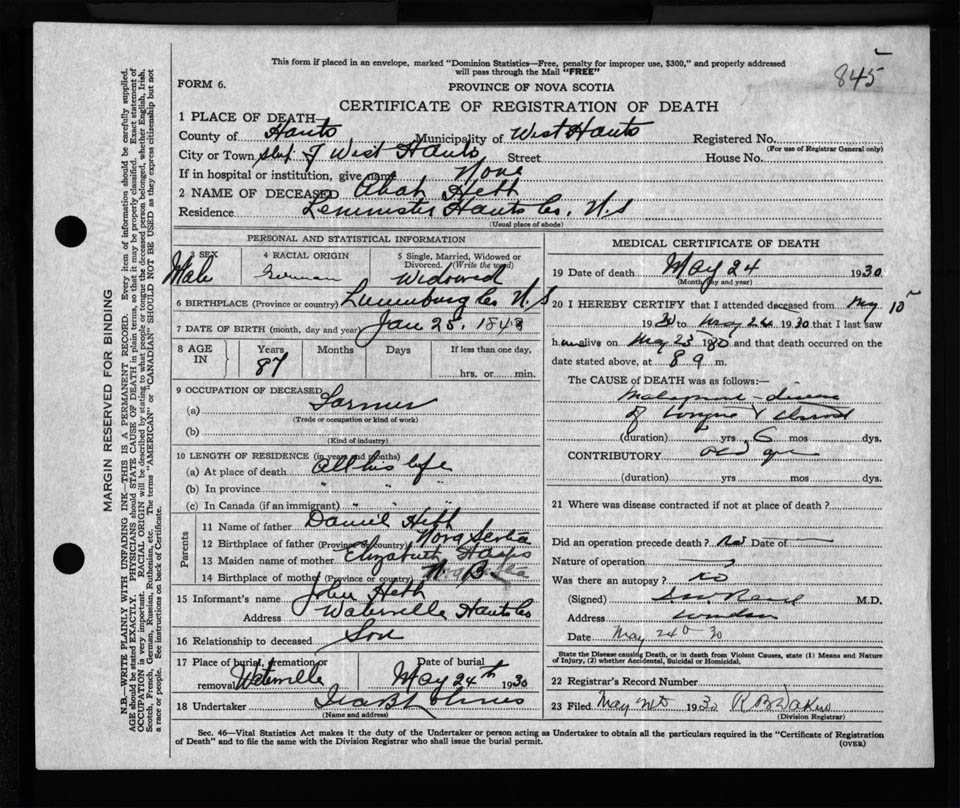 845
This form if placed in an envelope, marked "Dominion Statistics—Free, penalty for improper use, $300," and properly addressed
will pass through the Mail "FREE"
FORM 6.
PROVINCE OF NOVA SCOTIA
CERTIFICATE OF REGISTRATION OF DEATH
1 PLACE OF DEATH—
County of Hants Municipality of West Hants Registered No.
(For use of Registrar General only)
City or Town of West Hants Street House No.
If in hospital or institution, give name None
2 NAME OF DECEASED Heth
Residence Leminster Hants Co. N.S
(Usual place of abode)
PERSONAL AND STATISTICAL INFORMATION
3 SEX Male
4 RACIAL ORIGIN German
5 Single, Married, Widowed or Divorced. (Write the word) Widowed
6 BIRTHPLACE (Province or country) Lunenburg Co N S
7 DATE OF BIRTH (month, day and year) Jan 25, 1843
8 AGE IN Years 87 Months Days If less than one day, hrs. or min.
9 OCCUPATION OF DECEASED
(a) Farmer
(Trade or occupation or kind of work)
(b)
(Kind of industry)
10 LENGTH OF RESIDENCE (in years and months)
(a) At place of death All his life
(b) In province " " "
(c) In Canada (if an immigrant) " " "
Parents
11 Name of father Daniel Heth
12 Birthplace of father (Province or country) Nova Scotia
13 Maiden name of mother Elizabeth
14 Birthplace of mother (Province or country)
15 Informant's name John Heth
Address Waterville Hants Co
16 Relationship to deceased Son
17 Place of burial, cremation or removal Waterville
Date of burial May 24th 1930
18 Undertaker
(Name and address)
MEDICAL CERTIFICATE OF DEATH
19 Date of death May 24 1930
(Month, day and year)
20 I HEREBY CERTIFY that I attended deceased from May 10
1930 to May 24 1930 that I last saw
him alive on May 23 1930 and that death occurred on the
date stated above, at 8 m.
The CAUSE of DEATH was as follows:—
Malignant disease
of tongue & throat
(duration) yrs. 6 mos. dys.
CONTRIBUTORY old age
(duration) yrs. mos. dys.
21 Where was disease contracted if not at place of death?
Did an operation precede death? no Date of
Nature of operation
Was there an autopay? no
(Signed) M.D.
Address Windsor
Date May 24 30
State the Disease causing Death, or in death from Violent Causes, state (1) Means and Nature
of Injury, (2) whether Accidental, Suicidal or Homicidal.
22 Registrar's Record Number
23 Filed May 1930
(Division Registrar)
Sec. 46—Vital Statistics Act makes it the duty of the Undertaker or person acting as Undertaker to obtain all the particulars required in the "Certificate of Registration
of Death" and to file the same with the Division Registrar who shall issue the burial permit.
(OVER)
MARGIN RESERVED FOR BINDING
N.B.—WRITE PLAINLY WITH UNFADING INK—THIS IS A PERMANENT RECORD. Every item of information should be carefully supplied.
AGE should be stated EXACTLY. PHYSICIANS should STATE CAUSE OF DEATH in plain terms, so that it may be properly classified. Exact statement of
OCCUPATION is very important. RACIAL ORIGIN will be described by stating to what people or tongue the deceased person belonged, whether English, Irish,
Scotch, French, German, Russian, Ruthenian, etc. The terms "AMERICAN" or "CANADIAN" SHOULD NOT BE USED as they express citizenship but not
a race or people. See instructions on back of Certificate.